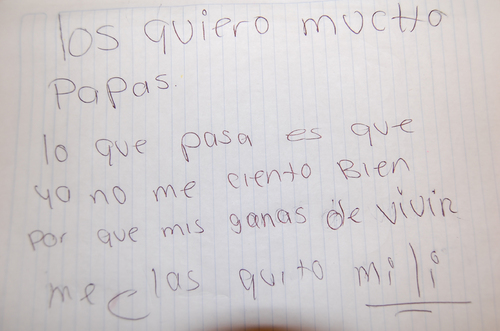 los quiero mucho
Papas.
lo que pasa es que
yo no me ciento Bien
por que mis ganas de vivir
me las quito mili